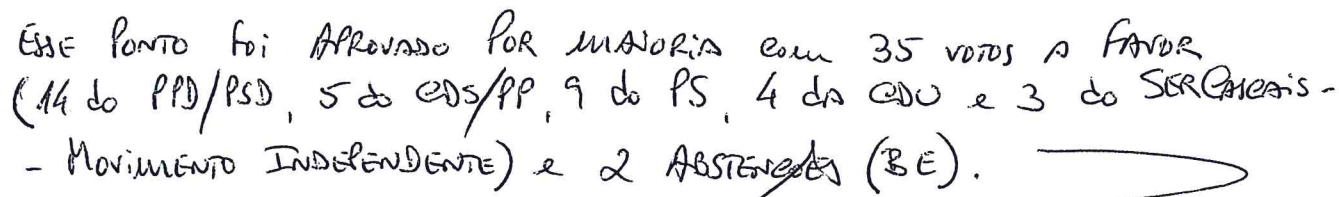 ESSE PONTO foi APROVADO POR MAIORIA com 35 VOTOS A FAVOR
(14 do PPD/PSD, 5 do CDS/PP, 9 do PS, 4 da CDU e 3 do SERCASCAIS-
- MOVIMENTO INDEPENDENTE) e 2 ABSTENÇÕES (BE).